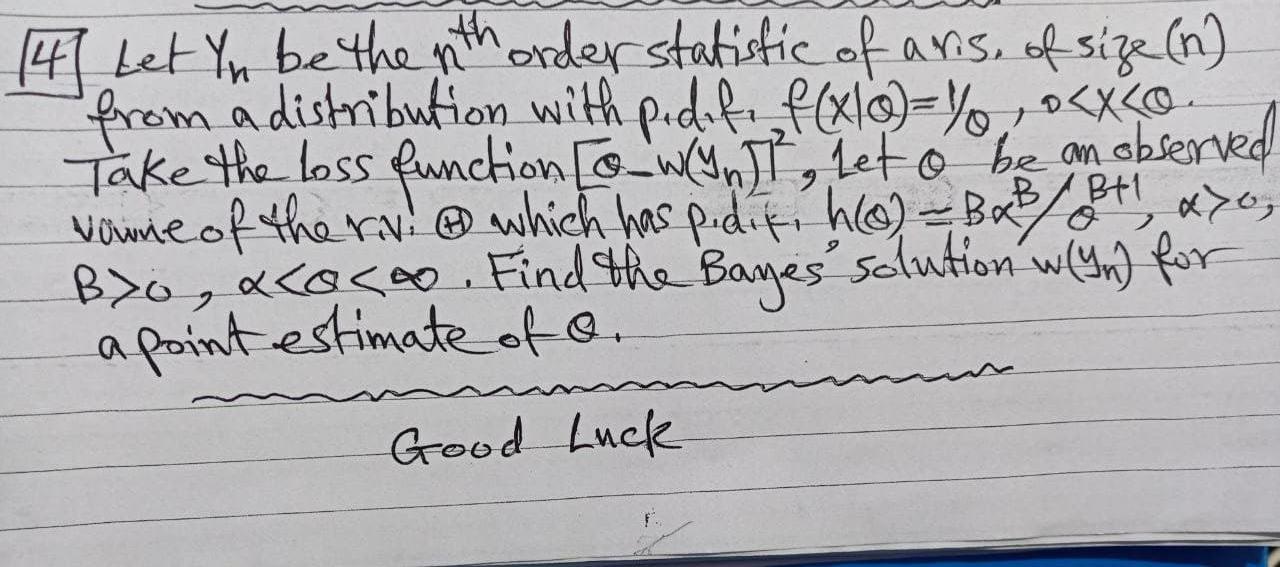 [4] Let Yn be the nth order statistic of a r.s. of size (n)
from a distribution with p.d.f. f(x|θ)=1/θ, 0<x<θ.
Take the loss function [θ-w(yn)]², Let θ be an observed
value of the r.v. Ⓗ which has p.d.f. h(θ)=Bα^B/θ^B+1, α>0,
B>0, α<θ<∞. Find the Bayes' solution w(yn) for
a point estimate of θ.
Good Luck